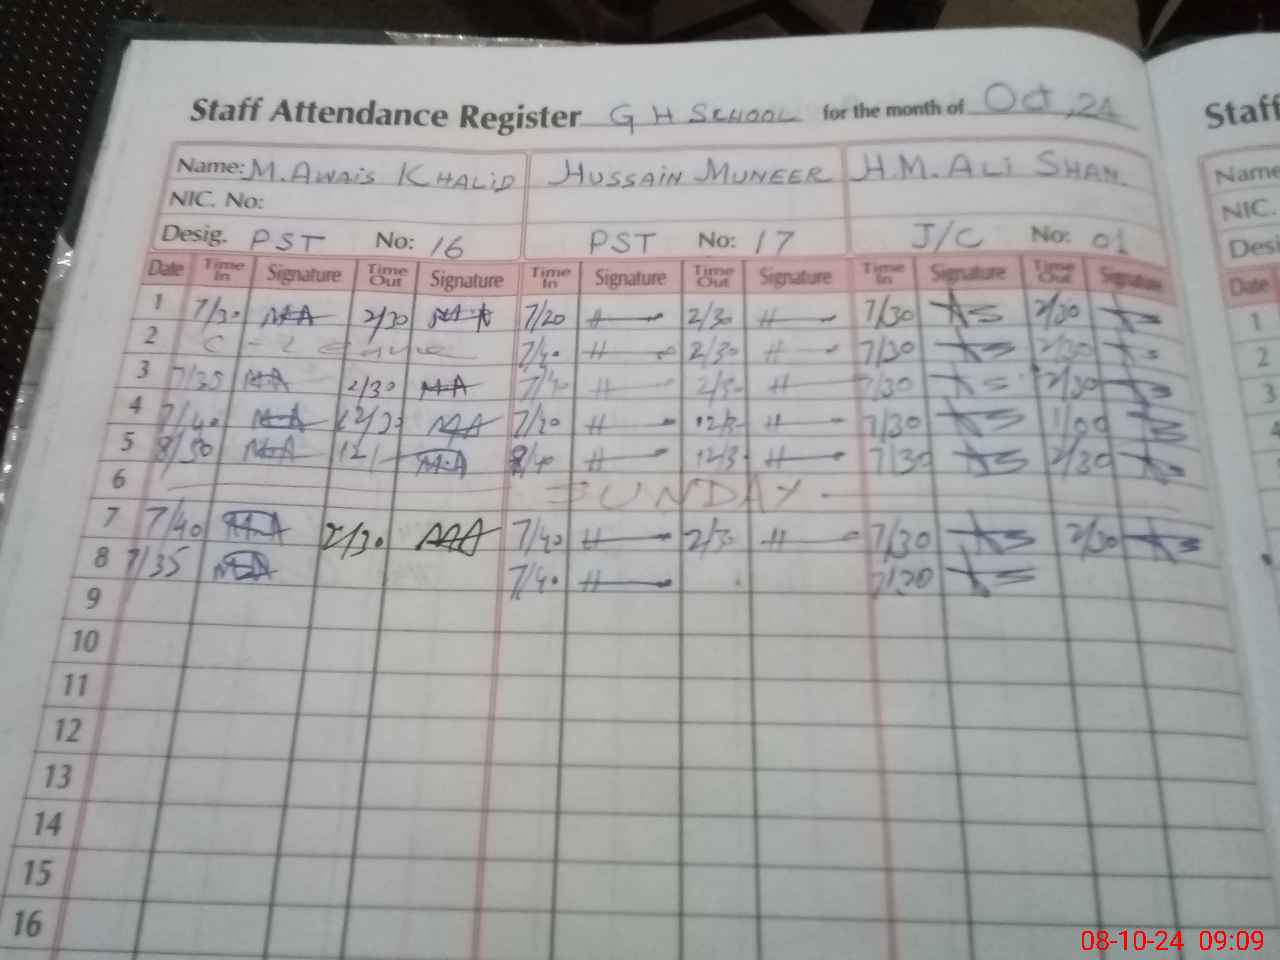 Staff Attendance Register G H SCHOOL for the month of Oct, 24
Staff
Name: M. AWAIS KHALID HUSSAIN MUNEER H.M. ALI SHAN.
Name
NIC. No:
NIC.
Desig. PST No: 16 PST No: 17 J/C No: 01
Desi
Date Time In Signature Time Out Signature Time In Signature Time Out Signature Time In Signature Time Out Signature
Date
1 7/30 2/30 7/20 H 2/30 H 7/30 AS 2/30
1
2 C-Leave 7/40 H 2/30 H 7/30 AS 2/30
2
3 7/35 MA 2/30 MA 7/40 H 2/30 H 7/30 AS 2/30
3
4 7/40 12/30 7/20 H H 7/30 AS 1/00
4
5 8/30 MA 8/40 H 12/3 H 7/30 AS 2/30
6 SUNDAY.
7 7/40 2/30 7/40 H 2/30 H 7/30 AS 2/30
8 7/35 7/40 H AS
9
10
11
12
13
14
15
16
08-10-24 09:09